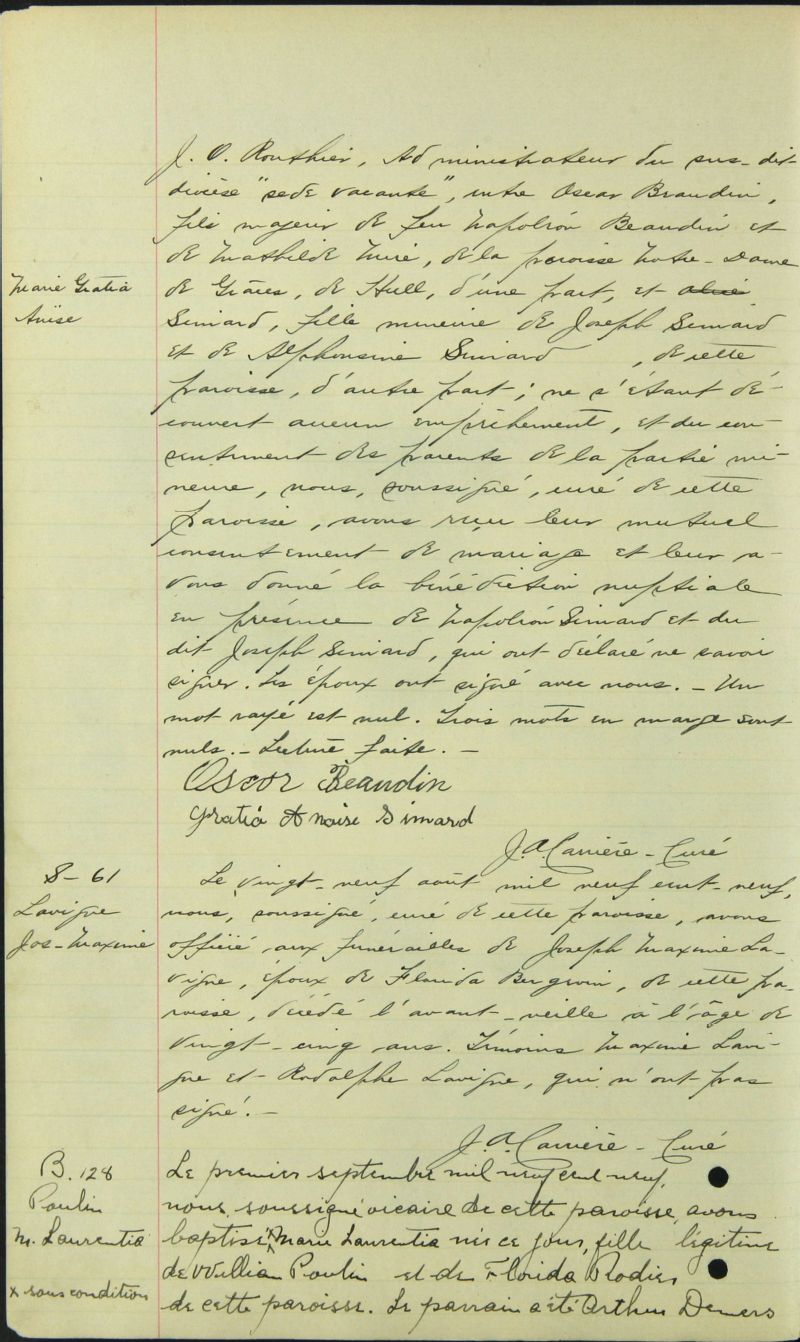 J. O. Routhier, Administrateur du sus-dit
diocèse "sede vacante", entre Oscar Beaudin,
fils majeur de feu Napoléon Beaudin et
de Mathilde Miré, de la paroisse Notre-Dame
Marie Gratia
de Grâces, de Hull, d'une part, et
Anïse
Simard, fille mineure de Joseph Simard
et de Alphonsine Simard , de cette
paroisse, d'autre part ; ne s'étant dé-
couvert aucun empêchement, et du con-
sentement des parents de la partie mi-
neure, nous, soussigné, curé de cette
paroisse, avons reçu leur mutuel
consentement de mariage et leur a-
vons donné la bénédiction nuptiale
en présence de Napoléon Simard et du
dit Joseph Simard, qui ont déclaré ne savoir
signer. Les époux ont signé avec nous. - Un
mot rayé est nul. Trois mots en marge sont
nuls. - Lecture faite. -
Oscar Beaudin
Gratia Anaise Simard
J. A. Carrière - Curé
S - 61
Lavigne
Jos-Maxime
Le vingt-neuf août mil neuf cent-neuf,
nous, soussigné, curé de cette paroisse, avons
officié aux funérailles de Joseph Maxime La-
vigne, époux de Florida Bergevin, de cette pa-
roisse, décédé l'avant-veille à l'âge de
vingt-cinq ans. Témoins Maxime Lavi-
gne et Rodolphe Lavigne, qui n'ont pas
signé. -
J. A. Carrière - Curé
B. 128
Poulin
M. Laurentia
x sous condition
Le premier septembre mil neuf cent neuf,
nous soussigné vicaire de cette paroisse, avons
baptisé x Marie Laurentia née ce jour, fille légitime
de William Poulin et de Florida Rodier
de cette paroisse. Le parrain a été Arthur Demers